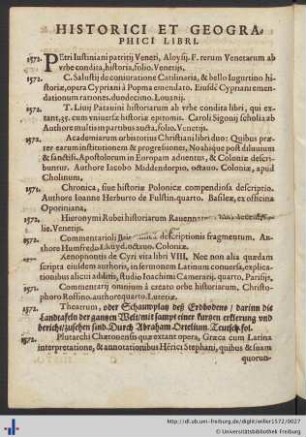 HISTORICI ET GEOGRA-
PHICI LIBRI.
1572. PEtri Iustiniani patritij Veneti, Aloysij. F. rerum Venetarum ab
vrbe condita, historia, folio. Venetijs.
1572. C. Salustij de coniuratione Catilinaria, & bello Iugurtino hi-
storiæ, opera Cypriani à Popma emendato. Eiusdē Cypriani emen-
dationum rationes. duodecimo. Louanij.
1572. T. Liuij Patauini historiarum ab vrbe condita libri, qui ex-
tant, 35. cum vniuersæ historiæ epitomis. Caroli Sigonij scholia ab
Authore multis in partibus aucta, folio. Venetijs.
1572. Academiarum orbis totius Christiani libri duo: Quibus præ-
ter earum institutionem & progressiones, Noah ique post diluuium
& sanctiss. Apostolorum in Europam aduentus, & Coloniæ descri-
buntur. Authore Iacobo Middendorpio, octauo. Coloniæ, apud
Cholinum.
1571. Chronica, siue historiæ Polonicæ compendiosa descriptio.
Authore Ioanne Herburto de Fulstin. quarto. Basileæ, ex officina
Oporiniana.
1572. Hieronymi Robei historiarum Rauenn
lie. Venetijs.
1572. Commentarioli descriptionis fragmentum. Au-
thore Humfredo Lhuyd. octauo. Coloniæ.
1572. Xenophontis de Cyri vita libri VIII. Nec non alia quædam
scripta eiusdem authoris, in sermonem Latinum conuersa, explica-
tionibus aliecti additis, studio Ioachimi Camerarij. quarto, Parisijs.
1571. Commentarij omnium à creato orbe historiarum, Christo-
phoro Rossino. authore quarto. Luteciæ.
1572. Theatrum, oder Schawplatz deß Erdbodens / darinn die
Landtafeln der gantzen Welt / mit sampt einer kurtzen erklerung vnd
bericht / zusehen sind. Durch Abraham Ortelium. Teutsch. fol.
1572. Plutarchi Chæronensis quæ extant opera, Græcæ cum Latina
interpretatione, & annotationibus Hērici Stephani, quibus & suam
quorun-
http://dl.ub.uni-freiburg.de/diglit/willer1572/0027
© Universitätsbibliothek Freiburg